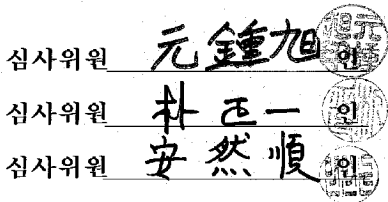 심사위원 元鍾旭 인
심사위원 朴正一 인
심사위원 安然順 인